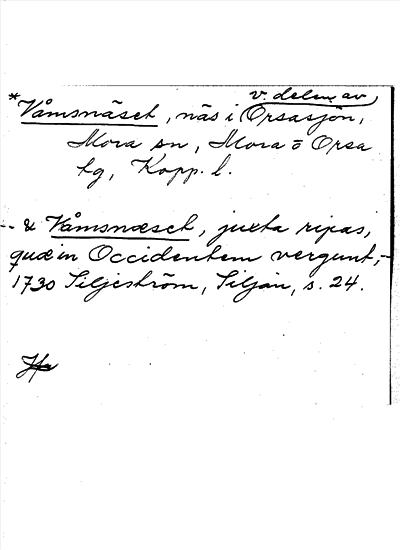 v. delen av
*Våmsnäset, näs i Orsasjön,
Mora sn, Mora o Orsa
tg, Kopp. l.
-- & Våmsnæset, juxta ripas,
quæ in Occidentem vergunt,-
1730 Siljeström, Siljan, s. 24.